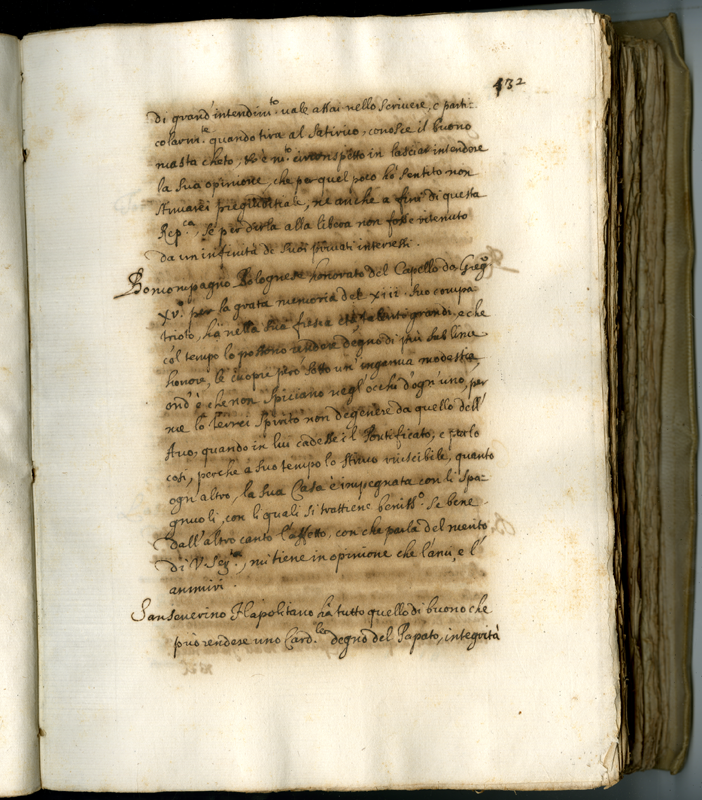 432
di grand'intendim.to vale assai nello scrivere, e parti-
colarm.te quando tira al satirico, conosce il buono
ma sta cheto, et è m.o circonspetto in lasciar intendere
la sua opinione, che per quel poco hò sentito non
stimarei pregiuditiale, ne anche a fini di questa
Rep.ca, se per dirla alla libera non fosse ritenuto
da un'infinità de suoi privati interessi.
Boncompagno Bolognese honorato del Capello da Greg.o
XV.o per la grata memoria del XIII. suo compa-
trioto, hà nella sua talenti grandi, e che
col tempo lo possono rendere degno di più sublime
honore, le cuopre però sotto un'ingenua modestia,
ond'è che non spiccano negl'occhi d'ogn'uno, per
me lo terrei spirito non degenere da quello dell'
Avo, quando in lui cadesse il Pontificato, e parlo
così, perche à suo tempo lo stimo riuscibile, quanto
ogn'altro, la sua Casa è impegnata con li Spa-
gnuoli, con li quali si trattiene beniss.o se bene
dall'altro canto l'affetto, con che parla del merito
di V. Ser.tà, mi tiene in opinione che l'ami, e l'
ammiri.
Sanseverino Napolitano hà tutto quello di buono che
può rendere uno Card.le degno del Papato, integrità